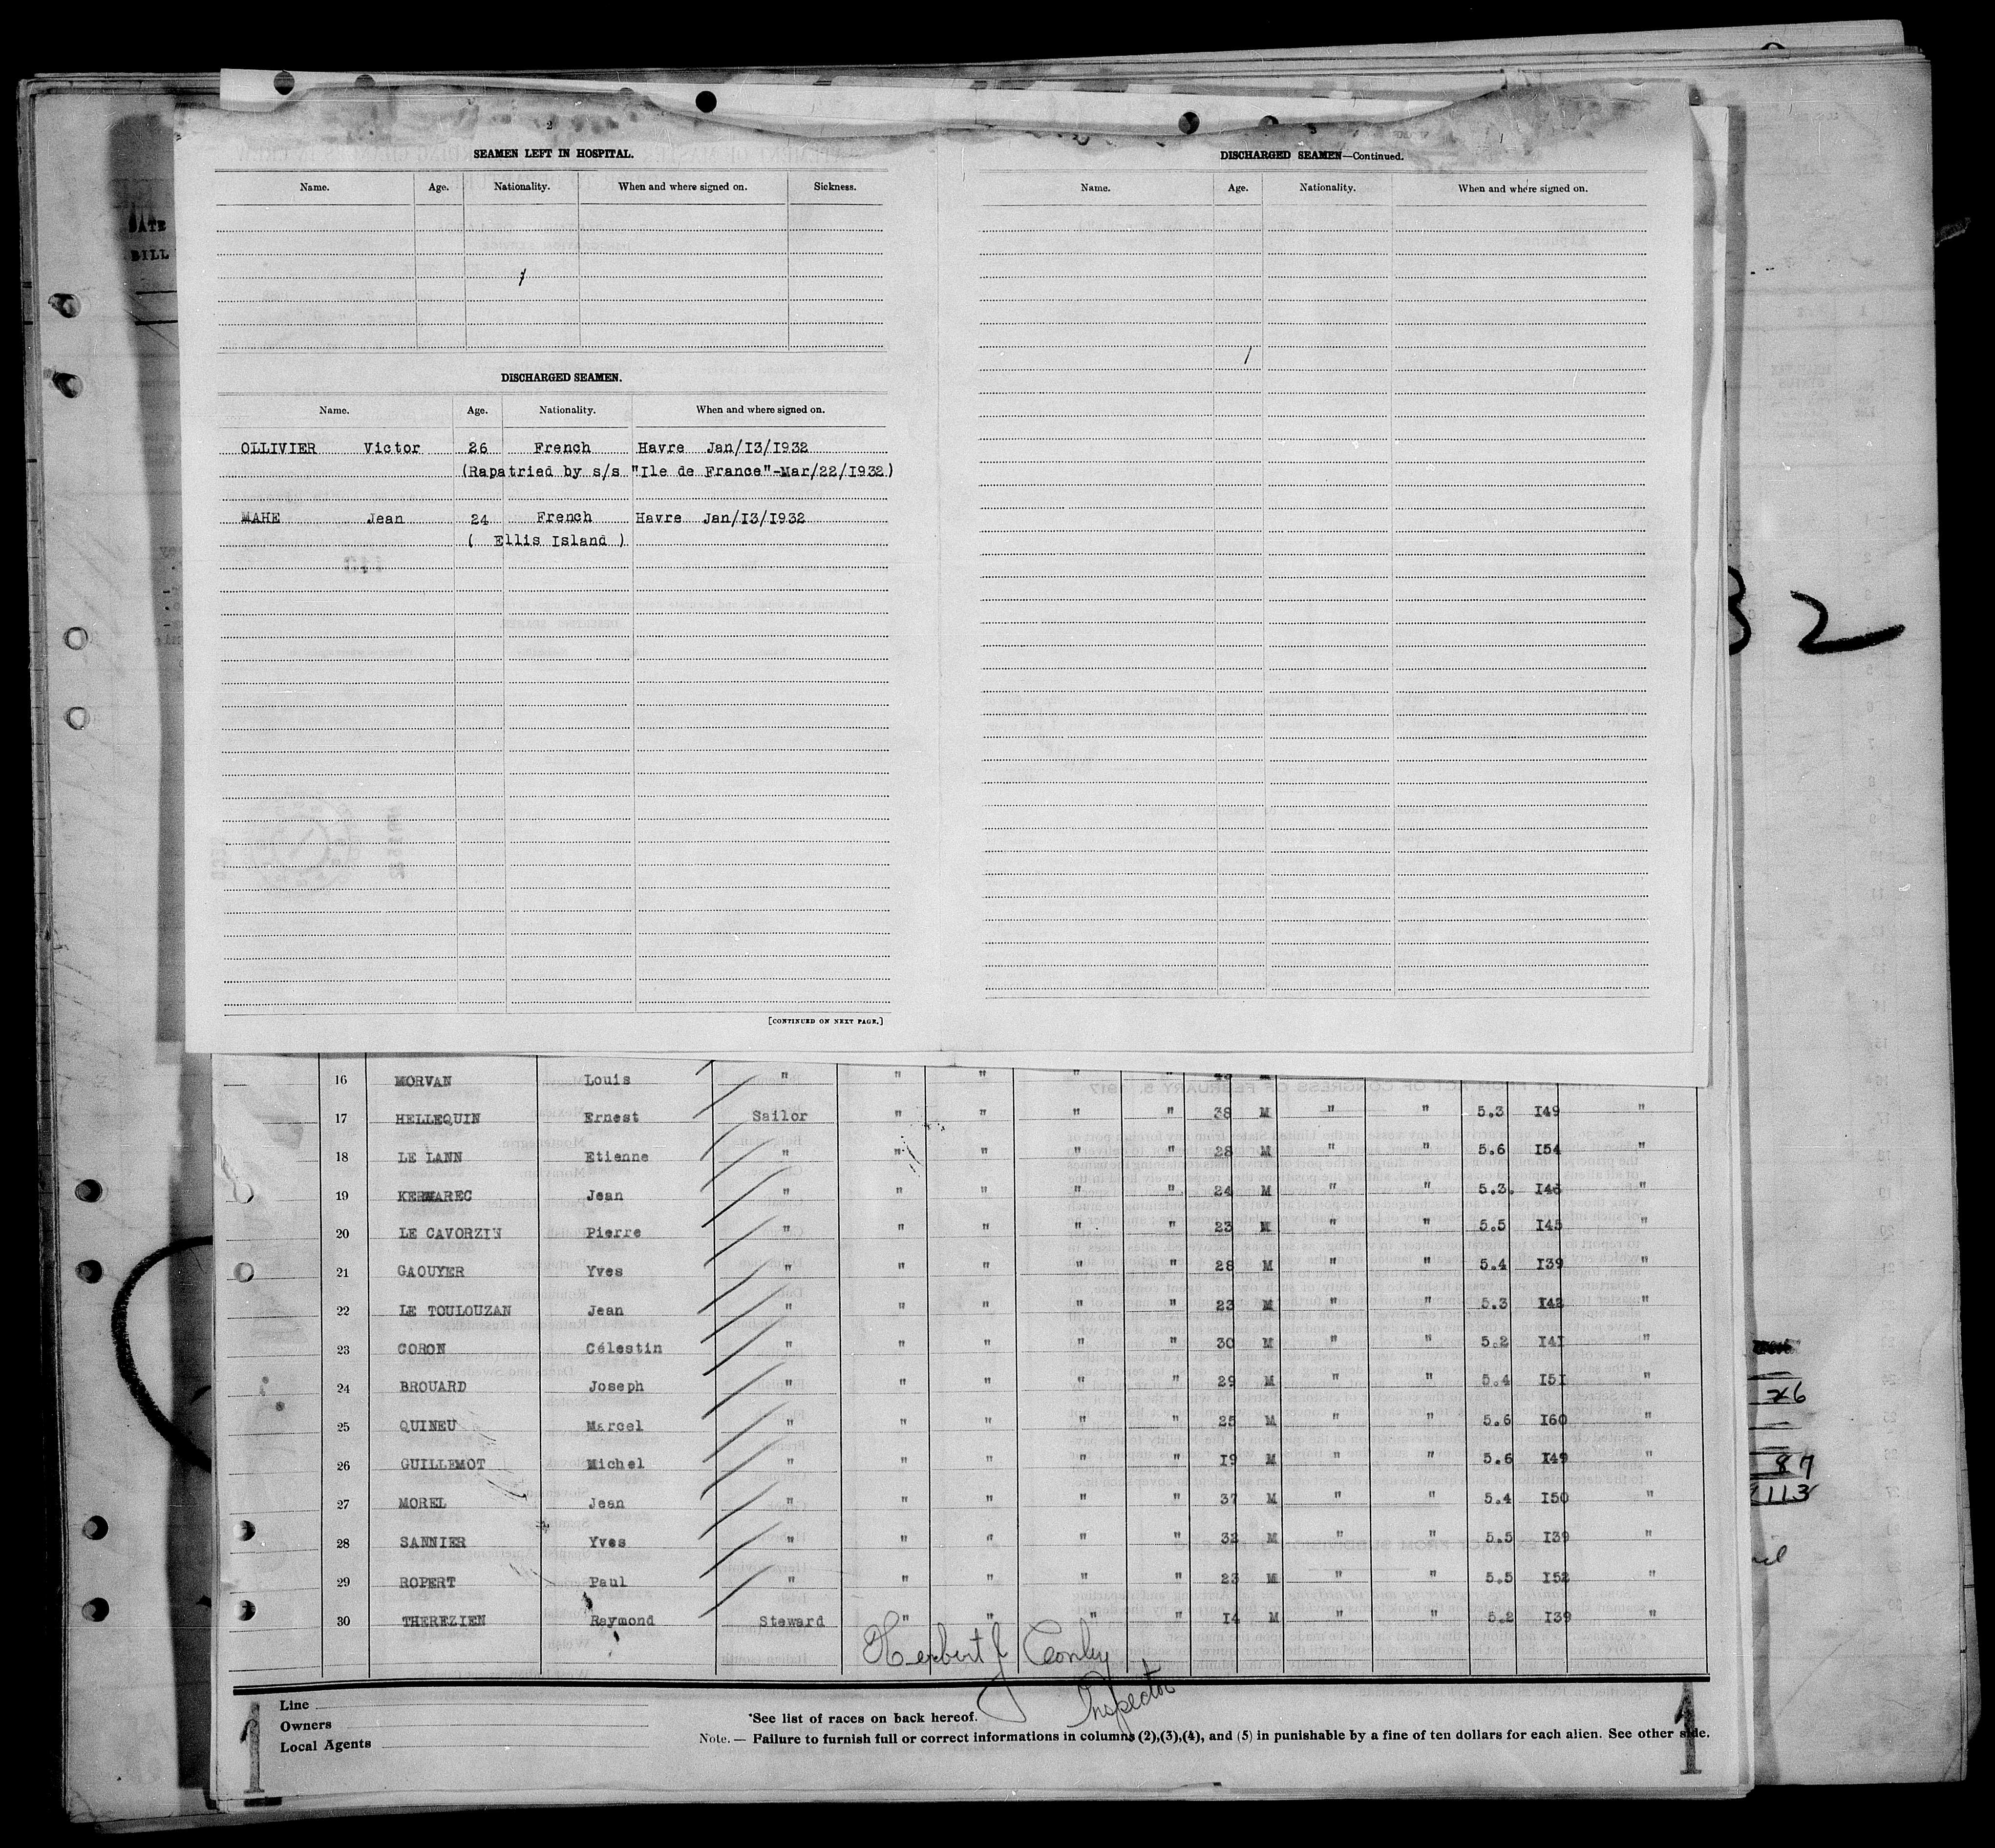 2
SEAMEN LEFT IN HOSPITAL.
Name. Age. Nationality. When and where signed on. Sickness.
DISCHARGED SEAMEN.
Name. Age. Nationality. When and where signed on.
OLLIVIER Victor 26 French Havre Jan/I3/I932
(Rapatried by s/s "Ile de France"-Mar/22/I932)
MAHE Jean 24 French Havre Jan/I3/I932
( Ellis Island )
[CONTINUED ON NEXT PAGE.]
3
DISCHARGED SEAMEN—Continued.
Name. Age. Nationality. When and where signed on.
DATE
BILL
32
16 MORVAN Louis " " " " " M
17 HELLEQUIN Ernest Sailor " " " " 38 M " " 5.3 I49 "
18 LE LANN Etienne " " " " " 28 M " " 5.6 I54 "
19 KERMAREC Jean " " " " " 24 M " " 5.3. I46 "
20 LE CAVORZIN Pierre " " " " " 23 M " " 5.5 I45 "
21 GAOUYER Yves " " " " " 28 M " " 5.4 I39 "
22 LE TOULOUZAN Jean " " " " " 23 M " " 5.3 I42 "
23 CORON Célestin " " " " " 30 M " " 5.2 I4I "
24 BROUARD Joseph " " " " " 29 M " " 5.4 I5I "
25 QUINEU Marcel " " " " " 25 M " " 5.6 I60 "
26 GUILLEMOT Michel " " " " " I9 M " " 5.6 I49 "
27 MOREL Jean " " " " " 37 M " " 5.4 I50 "
28 SANNIER Yves " " " " " 32 M " " 5.5 I39 "
29 ROPERT Paul " " " " " 23 M " " 5.5 I52 "
30 THEREZIEN Raymond Steward " " " " I4 M " " 5.2 I39 "
26
87
113
Herbert J Conley
Inspector
Line
Owners
Local Agents
*See list of races on back hereof.
Note. — Failure to furnish full or correct informations in columns (2),(3),(4), and (5) in punishable by a fine of ten dollars for each alien. See other side.
1
1